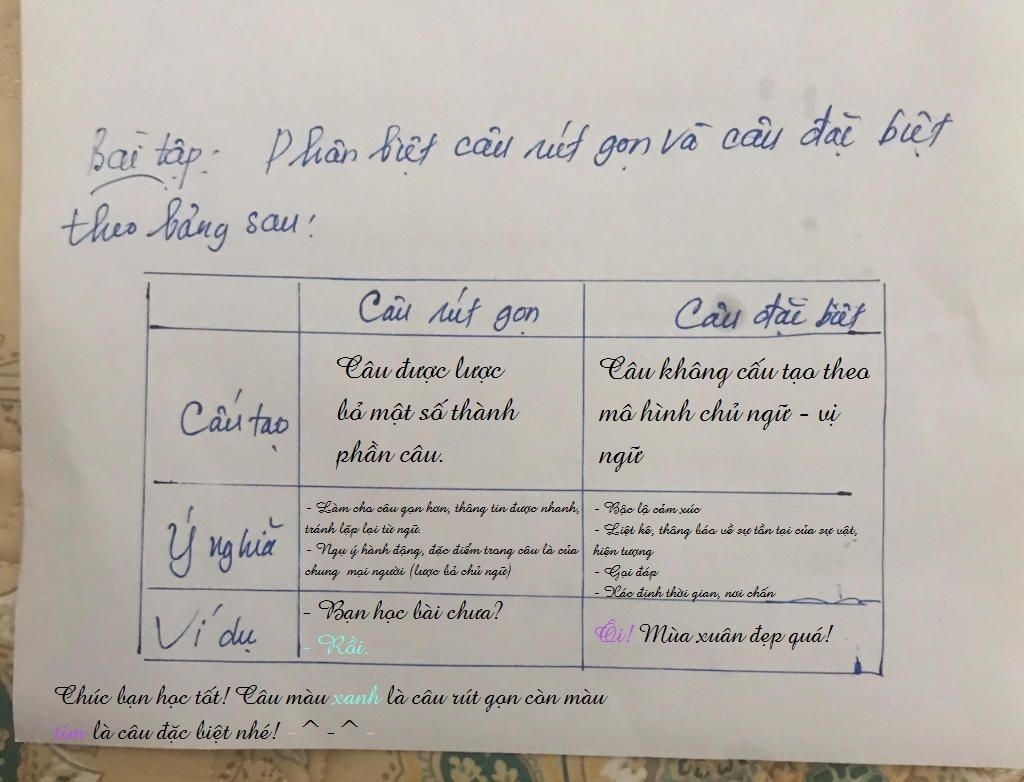 Bài tập: Phân biệt câu rút gọn và câu đặc biệt
theo bảng sau:
Câu rút gọn
Câu đặc biệt
Cấu tạo
Câu được lược
bỏ một số thành
phần câu.
Câu không cấu tạo theo
mô hình chủ ngữ - vị
ngữ
Ý nghĩa
- Làm cho câu gọn hơn, thông tin được nhanh,
tránh lặp lại từ ngữ.
- Ngụ ý hành động, đặc điểm trong câu là của
chung mọi người (lược bỏ chủ ngữ)
- Bộc lộ cảm xúc
- Liệt kê, thông báo về sự tồn tại của sự vật,
hiện tượng
- Gọi đáp
- Xác định thời gian, nơi chốn
Ví dụ
- Bạn học bài chưa?
- Rồi.
Ôi! Mùa xuân đẹp quá!
Chúc bạn học tốt! Câu màu xanh là câu rút gọn còn màu
tím là câu đặc biệt nhé! -^-^-